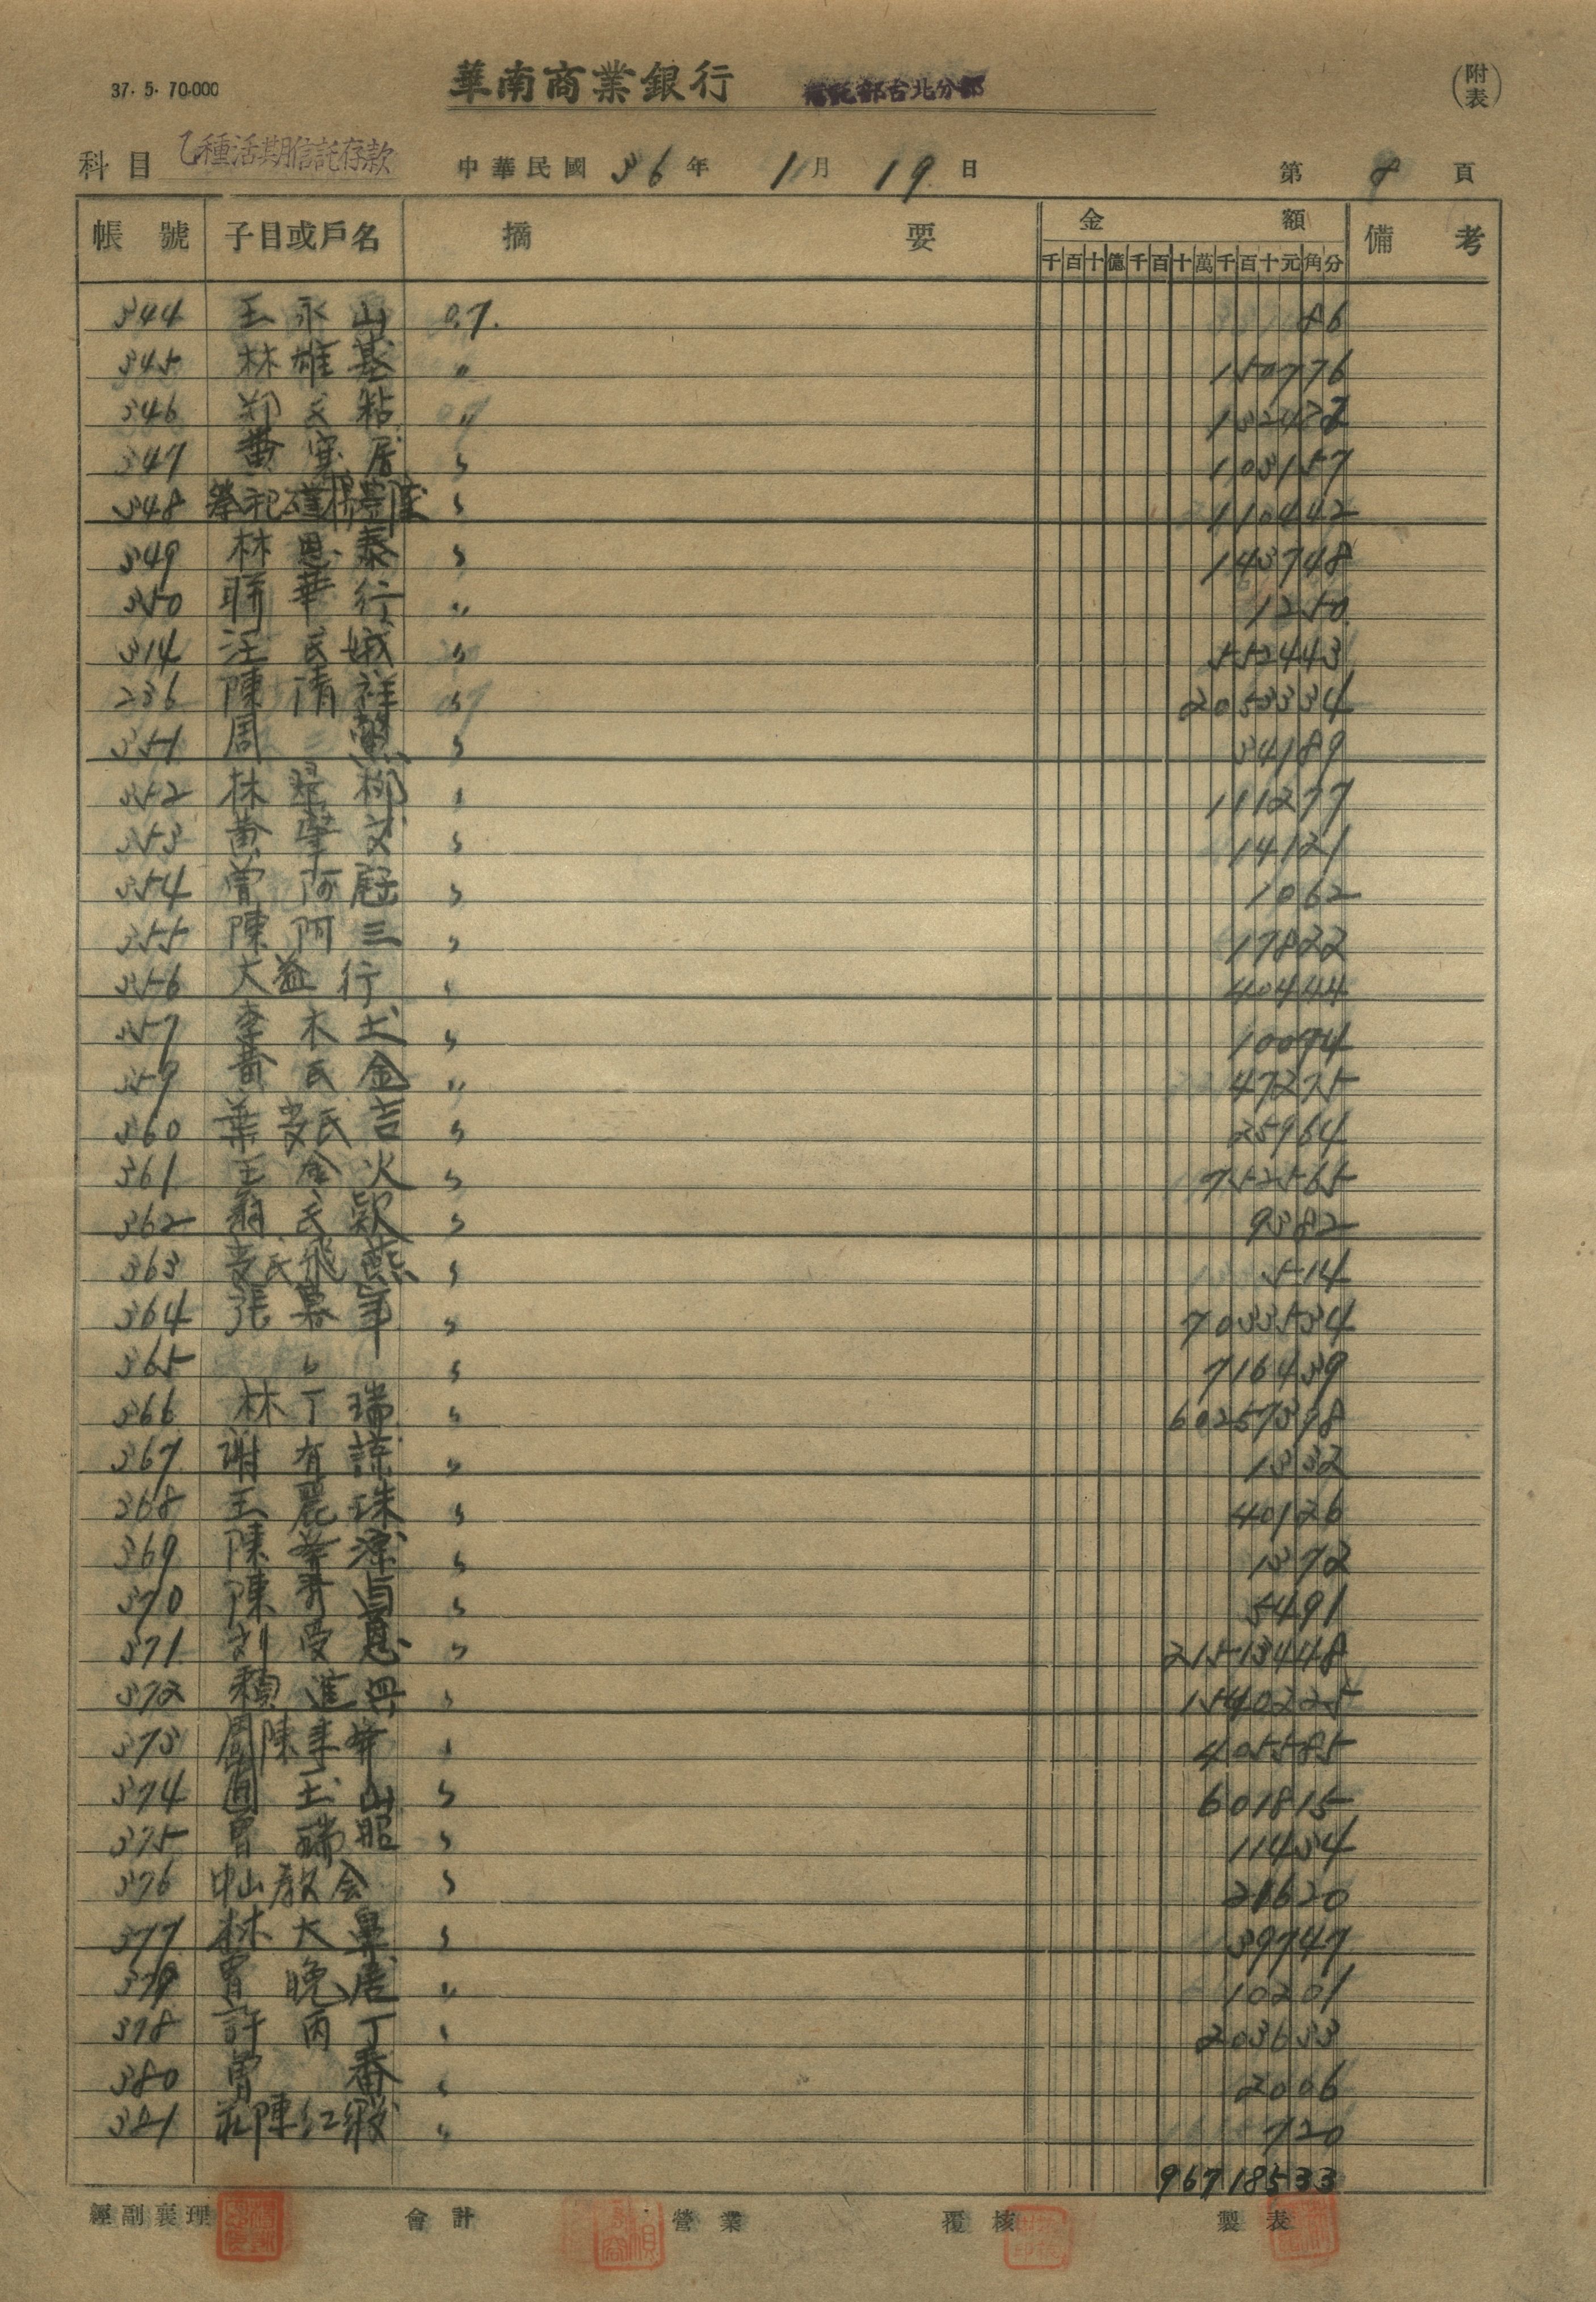 37. 5. 70.000
華南商業銀行 信託部台北分部
(附表)
科目 乙種活期信託存款 中華民國 36 年 1 月 19 日 第 8 頁
帳號 子目或戶名 摘要 金額 備考
千百十億千百十萬千百十元角分
344 王永山 0.7. 86
345 林雄基 〃 150776
346 鄭氏粘 〃
347 黃寬居 〃 103157
348 〃 110442
349 林恩泰 〃 143748
350 聯華行 〃 1250
314 汪氏娥 〃 552443
236 陳清祥 〃 2053334
351 周 〃 34189
352 林翠柳 〃 111277
353 黃肇文 〃 14121
354 曾阿冠 〃 1062
355 陳阿三 〃 17822
356 大益行 〃 40444
357 李木土 〃 10094
359 黃氏金 〃 47275
360 葉麥氏吉 〃 25964
361 王金火 〃 752565
362 翁氏款 〃 9382
363 麥氏飛燕 〃 514
364 張慕年 〃 7033534
365 〃 〃 716439
366 林丁瑞 〃 60257398
367 謝有諒 〃 1332
368 王麗珠 〃 40126
369 陳 〃 1372
370 陳 貞 〃 5491
371 劉受恩 〃 21513448
372 賴進 〃 1540225
373 周陳李 〃 405585
374 土山 〃 601815
375 曾瑞照 〃 11434
376 中山教会 〃 21620
377 林大鼻 〃 39747
379 曾晚居 〃 10201
378 許丙丁 〃 203633
380 曾番 〃 2006
381 陳紅緞 〃 720
96718533
經副襄理 會計 營業 覆核 製表